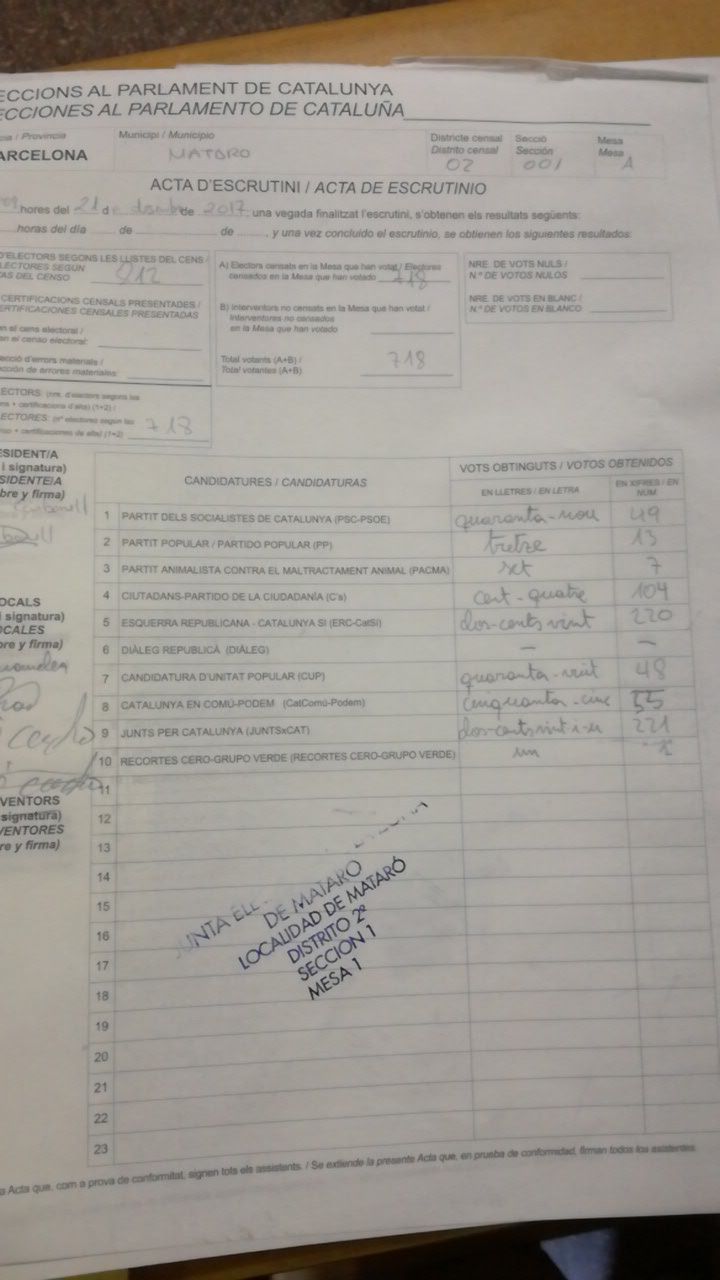 ECCIONS AL PARLAMENT DE CATALUNYA
ECCIONES AL PARLAMENTO DE CATALUÑA
cia / Provincia
Municipi / Municipio
Districte censal
Distrito censal
Secció
Sección
Mesa
Mesa
ARCELONA
MATARO
02
001
A
ACTA D'ESCRUTINI / ACTA DE ESCRUTINIO
hores del 21 d de 2017, una vegada finalitzat l'escrutini, s'obtenen els resultats següents:
horas del día de de , y una vez concluido el escrutinio, se obtienen los siguientes resultados:
D'ELECTORS SEGONS LES LLISTES DEL CENS /
LECTORES SEGÚN
AS DEL CENSO 912
CERTIFICACIONS CENSALS PRESENTADES /
ERTIFICACIONES CENSALES PRESENTADAS
en el cens electoral /
en el censo electoral:
ecció d'errors materials /
cción de errores materiales:
ECTORS: (nre. d'electors segons les
ns + certificacions d'alta) (1+2) /
LECTORES: (nº electores según las
nso + certificaciones de alta) (1+2) 718
A) Electors censats en la Mesa que han votat / Electores
censados en la Mesa que han votado 718
B) Interventors no censats en la Mesa que han votat /
Interventores no censados
en la Mesa que han votado
Total votants (A+B) /
Total votantes (A+B) 718
NRE. DE VOTS NULS /
N.º DE VOTOS NULOS
NRE. DE VOTS EN BLANC /
N.º DE VOTOS EN BLANCO
ESIDENT/A
i signatura)
SIDENTE/A
bre y firma)
OCALS
i signatura)
OCALES
bre y firma)
VENTORS
signatura)
VENTORES
re y firma)
CANDIDATURES / CANDIDATURAS
VOTS OBTINGUTS / VOTOS OBTENIDOS
EN LLETRES / EN LETRA
EN XIFRES / EN NUM
1 PARTIT DELS SOCIALISTES DE CATALUNYA (PSC-PSOE) quaranta-nou 49
2 PARTIT POPULAR / PARTIDO POPULAR (PP) tretze 13
3 PARTIT ANIMALISTA CONTRA EL MALTRACTAMENT ANIMAL (PACMA) set 7
4 CIUTADANS-PARTIDO DE LA CIUDADANÍA (C's) cent-quatre 104
5 ESQUERRA REPUBLICANA - CATALUNYA SI (ERC-CatSí) dos-cents vint 220
6 DIÀLEG REPUBLICÀ (DIÀLEG) — —
7 CANDIDATURA D'UNITAT POPULAR (CUP) quaranta-vuit 48
8 CATALUNYA EN COMÚ-PODEM (CatComú-Podem) cinquanta-cinc 55
9 JUNTS PER CATALUNYA (JUNTSxCAT) dos-cents vint-i-u 221
10 RECORTES CERO-GRUPO VERDE (RECORTES CERO-GRUPO VERDE) un 1
11
12
13
14
15
16
17
18
19
20
21
22
23
JUNTA ELE
DE MATARO
LOCALIDAD DE MATARÓ
DISTRITO 2º
SECCION 1
MESA 1
a Acta que, com a prova de conformitat, signen tots els assistents. / Se extiende la presente Acta que, en prueba de conformidad, firman todos los asistentes.